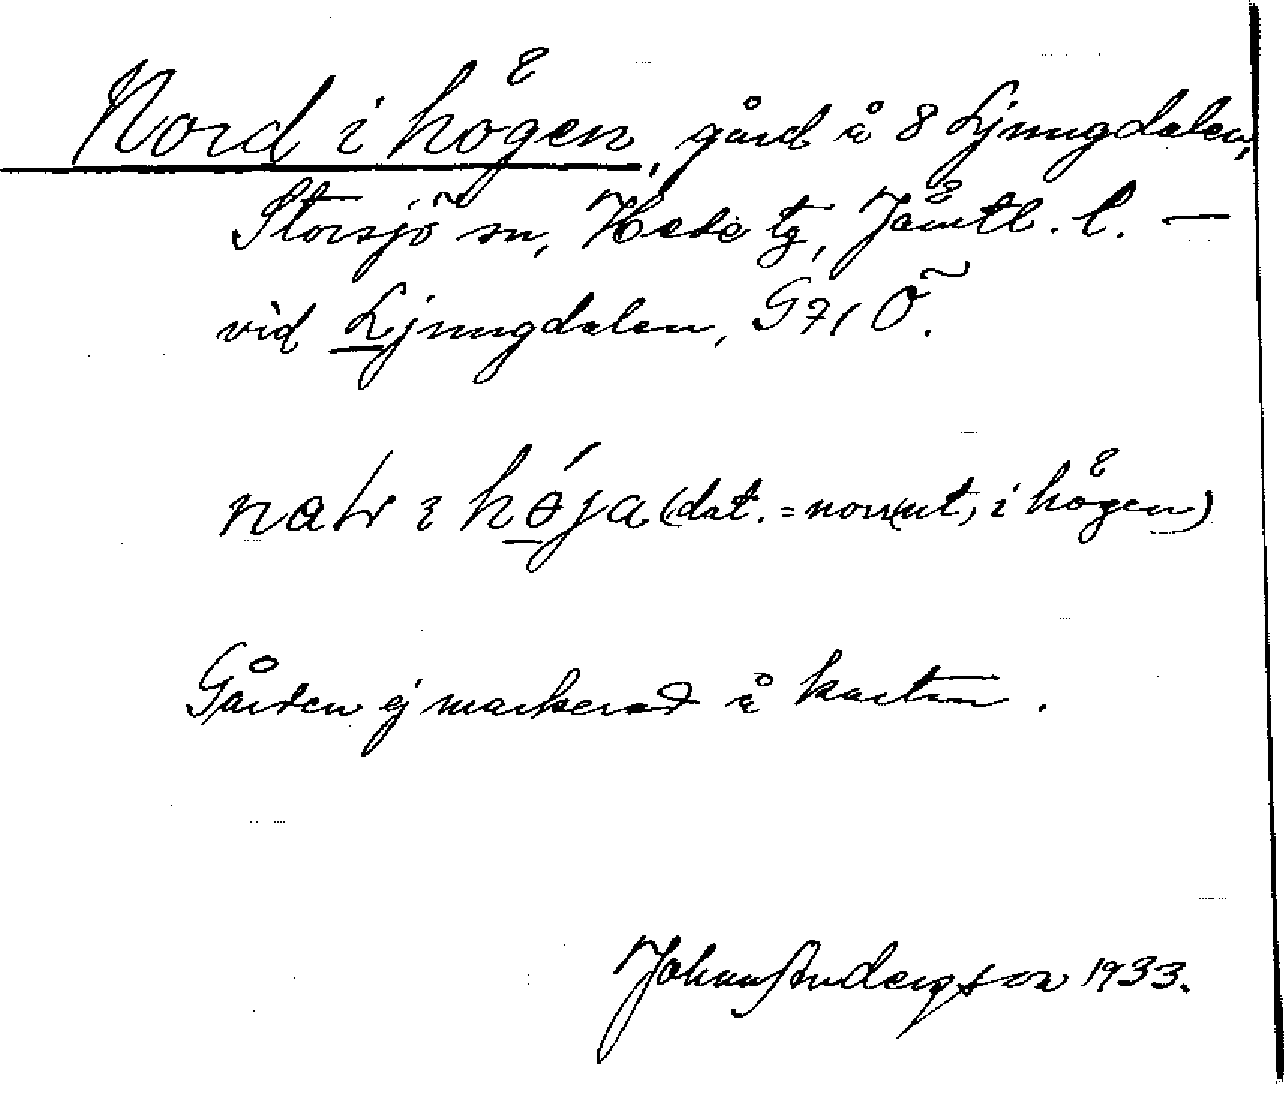 Nord i hågen, gård å 8 Ljungdalen,
Storsjö sn, Hede tg, Jämtl. l. —
vid Ljungdalen, G71 Ö.
i høja (dat. = norr(ut) i hågen)
Gården ej markerad å kartan.
Johan Andersson 1933.